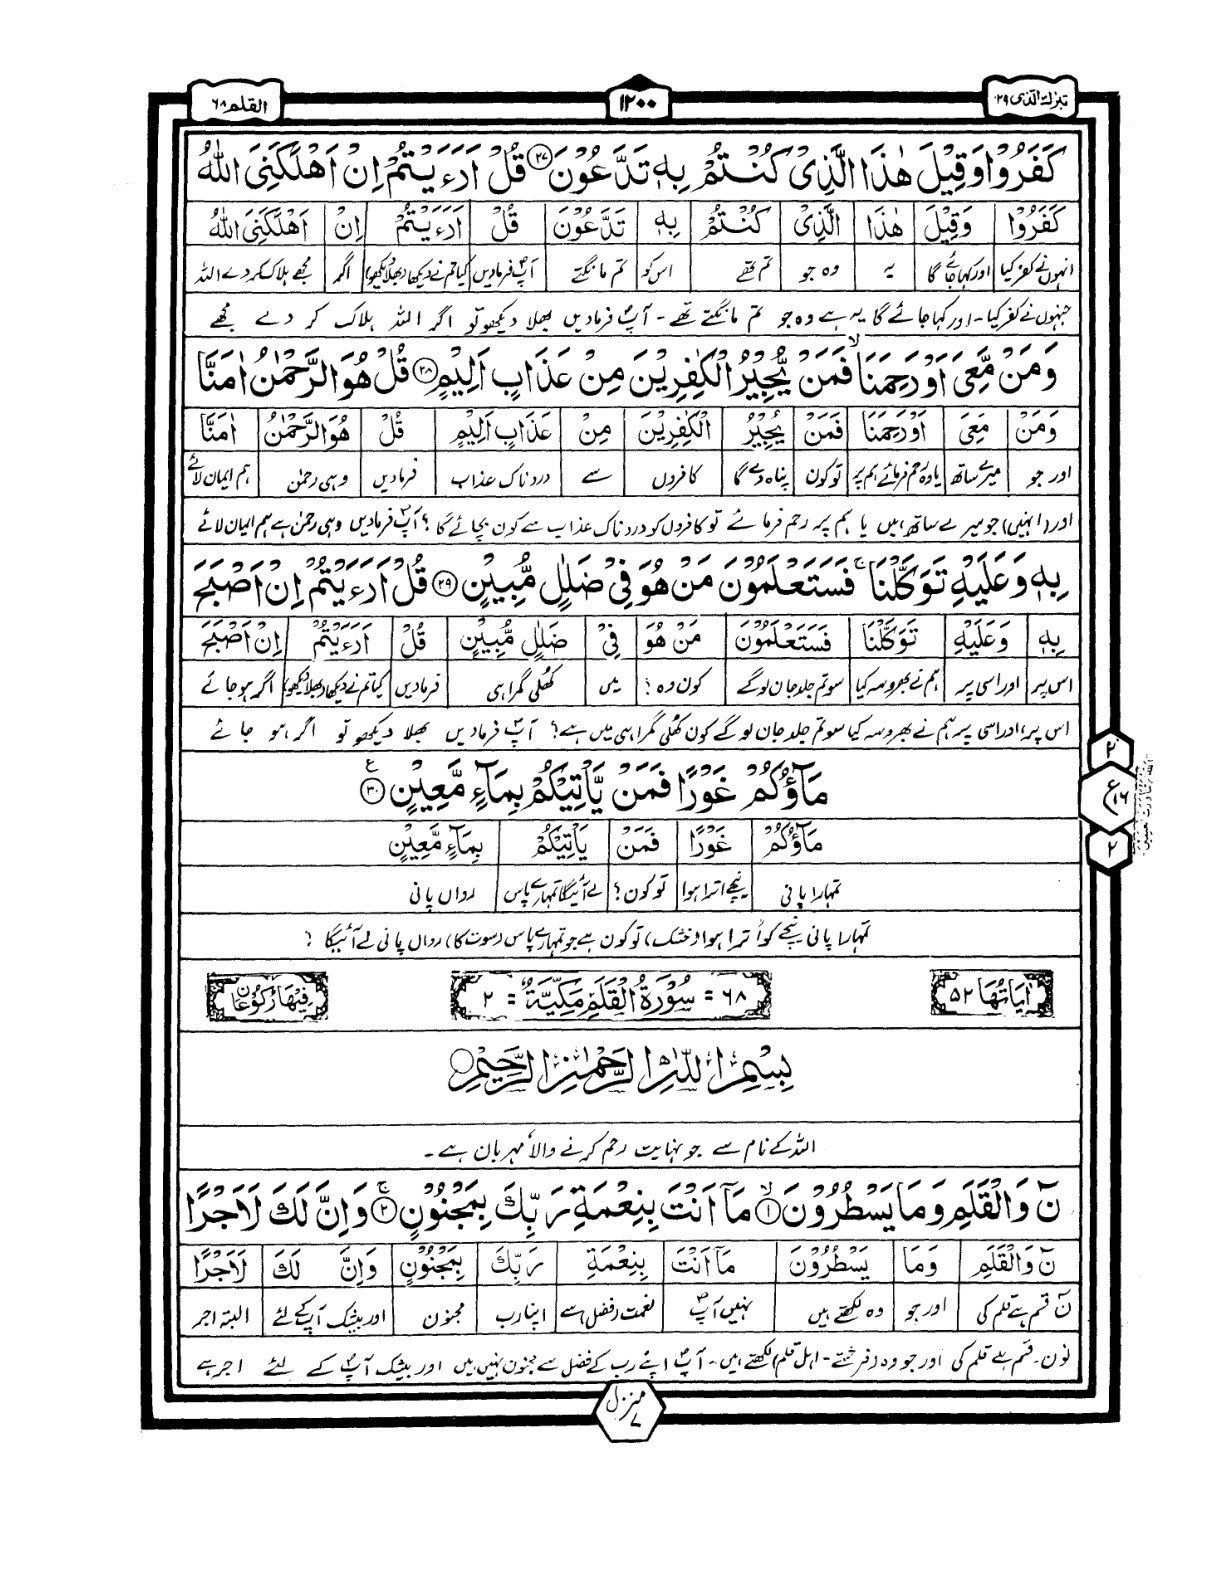 تبٰرک الذی ۲۹
۱۲۰۰
القلم ۶۸
کَفَرُوْا وَقِیْلَ هٰذَا الَّذِیْ کُنْتُمْ بِهٖ تَدَّعُوْنَ ۲۷ قُلْ اَرَءَیْتُمْ اِنْ اَهْلَکَنِیَ اللّٰهُ
کَفَرُوْا وَقِیْلَ هٰذَا الَّذِیْ کُنْتُمْ بِهٖ تَدَّعُوْنَ قُلْ اَرَءَیْتُمْ اِنْ اَهْلَکَنِیَ اللّٰهُ
انہوں نے کفر کیا اور کہا جائے گا یہ وہ جو تم تھے اس کو تم مانگتے آپؐ فرمادیں کیا تم نے دیکھا (بھلا دیکھو) اگر مجھے ہلاک کر دے اللہ
جنہوں نے کفر کیا۔ اور کہا جائے گا یہ ہے وہ جو تم مانگتے تھے۔ آپؐ فرمادیں بھلا دیکھو تو اگر اللہ ہلاک کر دے مجھے
وَمَنْ مَّعِیَ اَوْ رَحِمَنَا ۙ فَمَنْ یُّجِیْرُ الْکٰفِرِیْنَ مِنْ عَذَابٍ اَلِیْمٍ ۲۸ قُلْ هُوَ الرَّحْمٰنُ اٰمَنَّا
وَمَنْ مَّعِیَ اَوْ رَحِمَنَا فَمَنْ یُّجِیْرُ الْکٰفِرِیْنَ مِنْ عَذَابٍ اَلِیْمٍ قُلْ هُوَ الرَّحْمٰنُ اٰمَنَّا
اور جو میرے ساتھ یا وہ رحم فرمائے ہم پر تو کون پناہ دے گا کافروں سے دردناک عذاب فرمادیں وہی رحمٰن ہم ایمان لائے
اور (انہیں) جو میرے ساتھ ہیں یا ہم پر رحم فرمائے تو کافروں کو دردناک عذاب سے کون بچائے گا؟ آپؐ فرمادیں وہی رحمٰن ہے ہم ایمان لائے
بِهٖ وَعَلَیْهِ تَوَکَّلْنَا ۚ فَسَتَعْلَمُوْنَ مَنْ هُوَ فِیْ ضَلٰلٍ مُّبِیْنٍ ۲۹ قُلْ اَرَءَیْتُمْ اِنْ اَصْبَحَ
بِهٖ وَعَلَیْهِ تَوَکَّلْنَا فَسَتَعْلَمُوْنَ مَنْ هُوَ فِیْ ضَلٰلٍ مُّبِیْنٍ قُلْ اَرَءَیْتُمْ اِنْ اَصْبَحَ
اس پر اور اسی پر ہم نے بھروسہ کیا سو تم جلد جان لوگے کون وہ؟ میں کھلی گمراہی فرمادیں کیا تم نے دیکھا (بھلا دیکھو) اگر ہو جائے
اس پر، اور اسی پر ہم نے بھروسہ کیا سو تم جلد جان لوگے کون کھلی گمراہی میں ہے؟ آپؐ فرمادیں بھلا دیکھو تو اگر ہو جائے
مَآؤُکُمْ غَوْرًا فَمَنْ یَّاْتِیْکُمْ بِمَآءٍ مَّعِیْنٍ ۳۰ ع
مَآؤُکُمْ غَوْرًا فَمَنْ یَّاْتِیْکُمْ بِمَآءٍ مَّعِیْنٍ
تمہارا پانی نیچے اترا ہوا تو کون؟ لے آئیگا تمہارے پاس رواں پانی
تمہارا پانی نیچے کو اُترا ہوا (خشک)، تو کون ہے جو تمہارے پاس (سوت کا) رواں پانی لے آئیگا؟
۲
ع ۱۶
۲
اٰیَاتُهَا ۵۲
۶۸ = سُوْرَةُ الْقَلَمِ مَکِّیَّةٌ = ۲
فِیْهَا رُکُوْعَانِ
بِسْمِ اللّٰهِ الرَّحْمٰنِ الرَّحِیْمِ
اللہ کے نام سے جو نہایت رحم کرنے والا، مہربان ہے۔
نٓ وَالْقَلَمِ وَمَا یَسْطُرُوْنَ ۙ ۱ مَآ اَنْتَ بِنِعْمَةِ رَبِّکَ بِمَجْنُوْنٍ ۚ ۲ وَاِنَّ لَکَ لَاَجْرًا
نٓ وَالْقَلَمِ وَمَا یَسْطُرُوْنَ مَآ اَنْتَ بِنِعْمَةِ رَبِّکَ بِمَجْنُوْنٍ وَاِنَّ لَکَ لَاَجْرًا
نٓ قسم ہے قلم کی اور جو وہ لکھتے ہیں نہیں آپؐ نعمت (فضل) سے اپنا رب مجنون اور بیشک آپؐ کے لئے البتہ اجر
نون۔ قسم ہے قلم کی اور جو وہ (فرشتے۔ اہل قلم) لکھتے ہیں۔ آپؐ اپنے رب کے فضل سے مجنون نہیں ہیں اور بیشک آپؐ کے لئے اجر ہے
منزل ۷